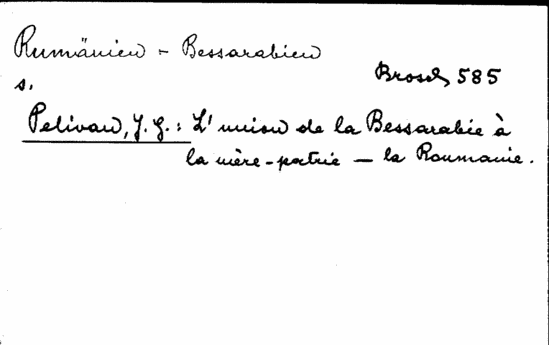 Rumänien - Bessarabien
Brosch 585
s.
Pelivan, J. G.: L'union de la Bessarabie à
la mère-patrie — la Roumanie.